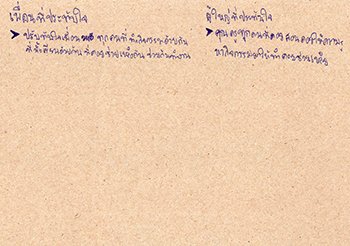 เพื่อนที่ประทับใจ
➤ ประทับใจเพื่อน ทุกคนที่ทำกิจกรรมด้วยกัน
ที่นั่งเรียนด้วยกัน ที่คอยช่วยเหลือกัน ช่วยกันทำงาน
ผู้ใหญ่ที่ประทับใจ
➤ คุณครูทุกคนที่คอยสอนคอยให้ความรู้
หากิจกรรมมาให้ทำ คอยช่วยเหลือ